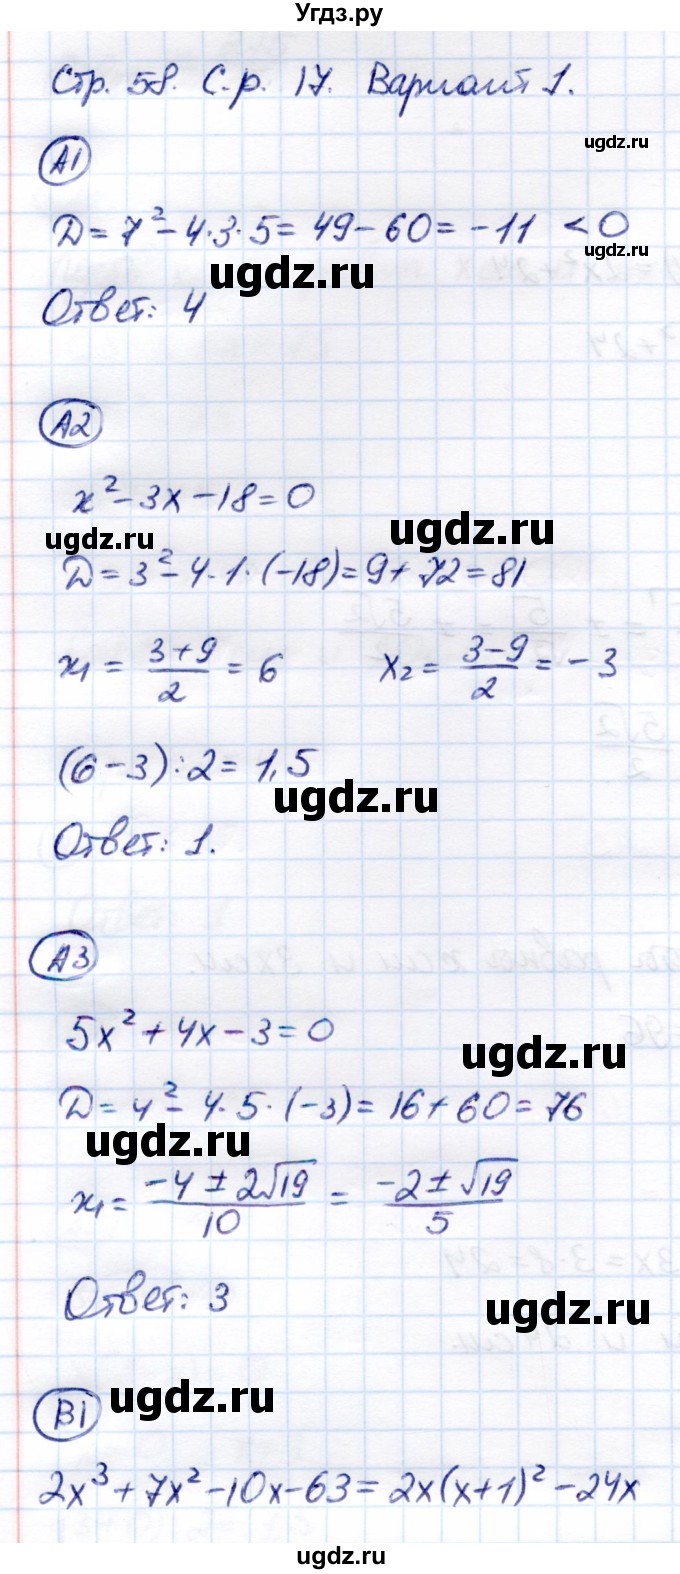 Угдз.ру
Стр. 58. С.р. 17. Вариант 1.
ugdz.ru
А1
D = 7² - 4·3·5 = 49 - 60 = -11 < 0
ugdz.ru
ugdz.ru
Ответ: 4
А2
x² - 3x - 18 = 0
ugdz.ru
ugdz.ru
D = 3² - 4·1·(-18) = 9 + 72 = 81
x₁ = (3+9)/2 = 6    x₂ = (3-9)/2 = -3
(6-3):2 = 1,5
ugdz.ru
Ответ: 1.
А3
5x² + 4x - 3 = 0
ugdz.ru
D = 4² - 4·5·(-3) = 16 + 60 = 76
ugdz.ru
x₁ = (-4 ± 2√19)/10 = (-2 ± √19)/5
Ответ: 3
ugdz.ru
В1
ugdz.ru
2x³ + 7x² - 10x - 63 = 2x(x+1)² - 24x
ugdz.ru